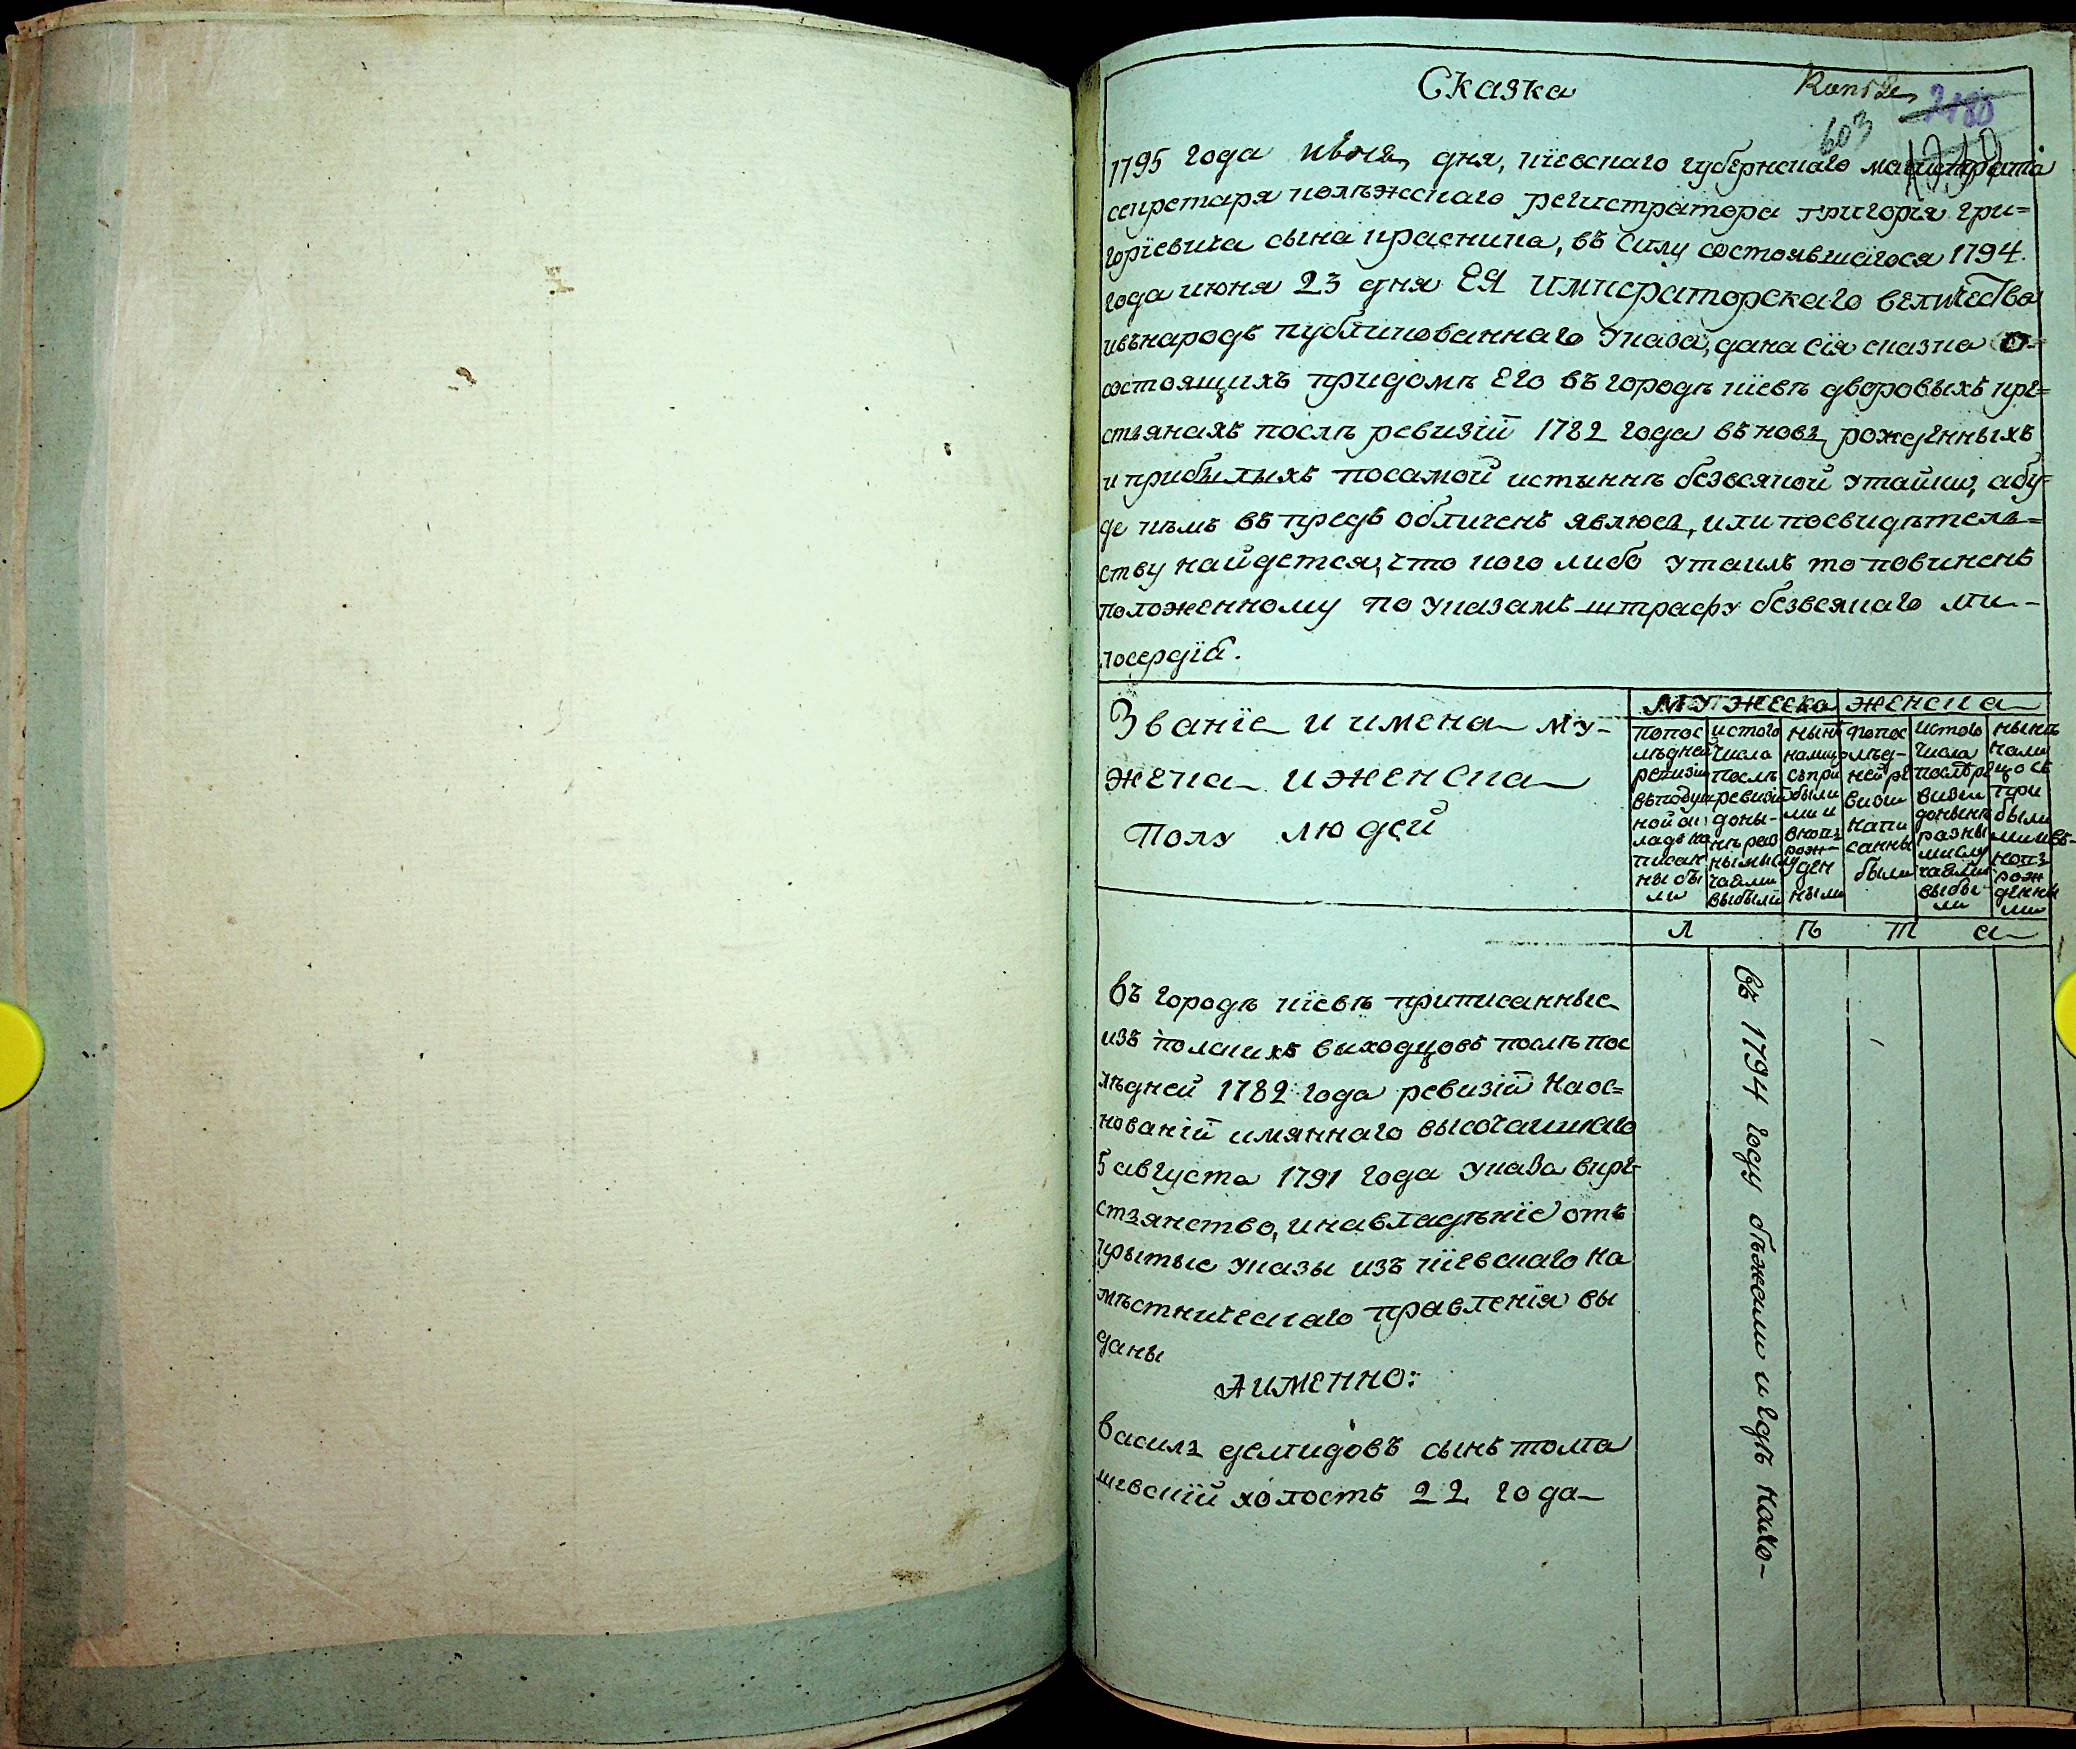 Сказка
603
1795 года июня дня, кіевскаго губернскаго магистрата
секретаря колѣжскаго регистратора григорія гри=
горіевича сына красника, въ силу состоявшагося 1794.
года июня 23 дня ЕЯ императорскаго величества
ивънародъ публикованнаго указа, дана сія сказка о=
состоящихъ придомѣ его въ городѣ кіевѣ дворовыхъ кре=
стьянахъ послѣ ревизіи 1782 года въновь рожденныхъ
и прибылыхъ посамой истыннѣ безвсякой утайки, абу=
де кѣмъ въпредъ обличенъ явлюсь, или посвидѣтель=
ству найдется, что кого либо утаилъ то повиненъ
положенному по указамъ штрафу безвсякаго ми-
лосердія.
Званіе и имена му-
жеска и женска
полу людей
мужеска женска
попос лѣдней ревизіи въподушной окладъ написан ны бы ли
истого числа послѣ ревизіи доны- нѣ раз нымислучаями выбыли
нынѣ налицо съпри былыми и вновь рож- ден ными
попос лѣд- ней ре визіи напи санны были
истого числа послѣре визіи донынѣ разны мислу чаями выбы- ли
нынѣ нали цо съ при былы миивъ- новь рож денны ми
л ѣ т а
въ городѣ кіевѣ приписанные
изъ полскихъ выходцовъ послѣ пос
лѣдней 1782 года ревизіи наос=
нованіи имяннаго высочаишаго
5 августа 1791 года указа вкре-
стьянство, инавладѣніе от
крытые указы изъ кіевскаго на
мѣстническаго правленія вы
даны
Аименно:
василь демидовъ сынъ тома
шевскій холостъ 22 года
въ 1794 году бѣжали и гдѣ нахо-